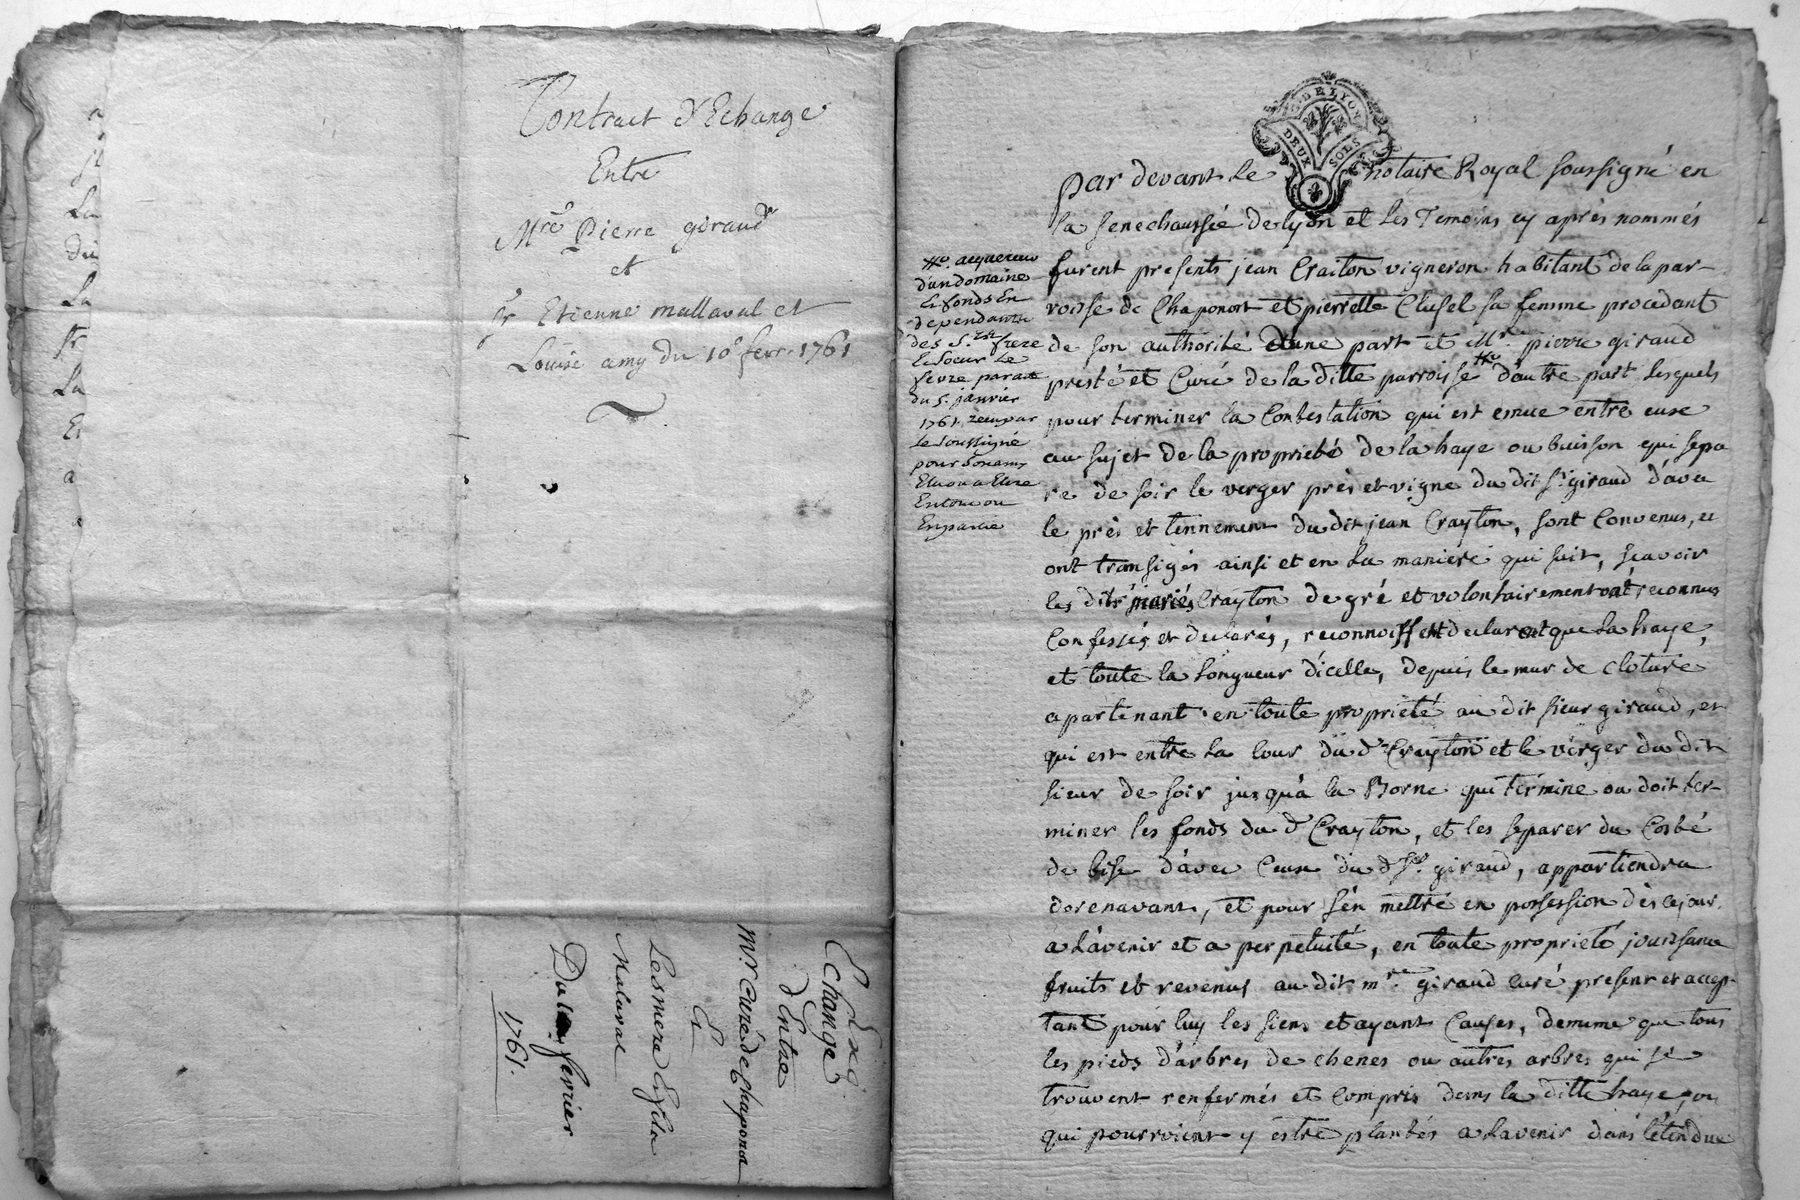 Contract d'Echange
Entre
Mre Pierre giraud
et
Sr Etienne mallaval et
Louise amy du 10e fevr. 1761
Echange
d'Entre
Mr. Curé de Chaponost
Et
Les mere & fils
Malaval
Du 10 fevrier
1761.
a
st
La
du
La
fr
La
Et
a
DE LYON
DEUX SOLS
par devant Le notaire Royal soussigné en
la senechaussée de lyon et les Temoins cy après nommés
furent presents jean Craiton vigneron habitant de la par-
roisse de Chaponost et pierrette Clusel sa femme procedant
de son authorité d'une part et Mre pierre giraud
prestre et Curé de la ditte parroisse d'autre part lesquels
pour terminer la Contestation qui est emue entre eux
au sujet de la proprieté de la haye ou buisson qui sepa
re de soir le verger près et vigne du dit Sr giraud d'avec
le près et tennement du dit jean Crayton, sont Convenus, et
ont transigés ainsi et en la maniere qui suit, scavoir
les dits mariés Crayton de gré et volontairement ont reconnus
Confessés et declarés, reconnoissent declarent que la haye,
et toute la longueur d'icelle, depuis le mur de cloture
apartenant en toute proprieté au dit sieur giraud, et
qui est entre la Cour du d. Crayton et le verger du dit
sieur de soir jusqu'à la Borne qui termine ou doit ter-
miner les fonds du d. Crayton, et les separer du Costé
de bise d'avec Ceux du d. Sr. giraud, appartiendra
dorenavant, et pour s'en mettre en possession dès ce jour,
a l'avenir et a perpetuité, en toute proprieté jouissance
fruits et revenus au dit mre. giraud curé present et accep-
tant pour luy les siens et ayant Causes, de meme que tous
les pieds d'arbres de chenes ou autres arbres qui se
trouvent renfermés et Compris dans la ditte haye, ou
qui pourroient y estre plantés a l'avenir dans l'etendue
acquereur
d'un domaine
& fonds En
dependants
des Srs frere
& soeur Le
feure par acte
du 5. janvier
1761. recu par
le soussigné
pour son amy
Elu ou a Elire
En tout ou
En partie